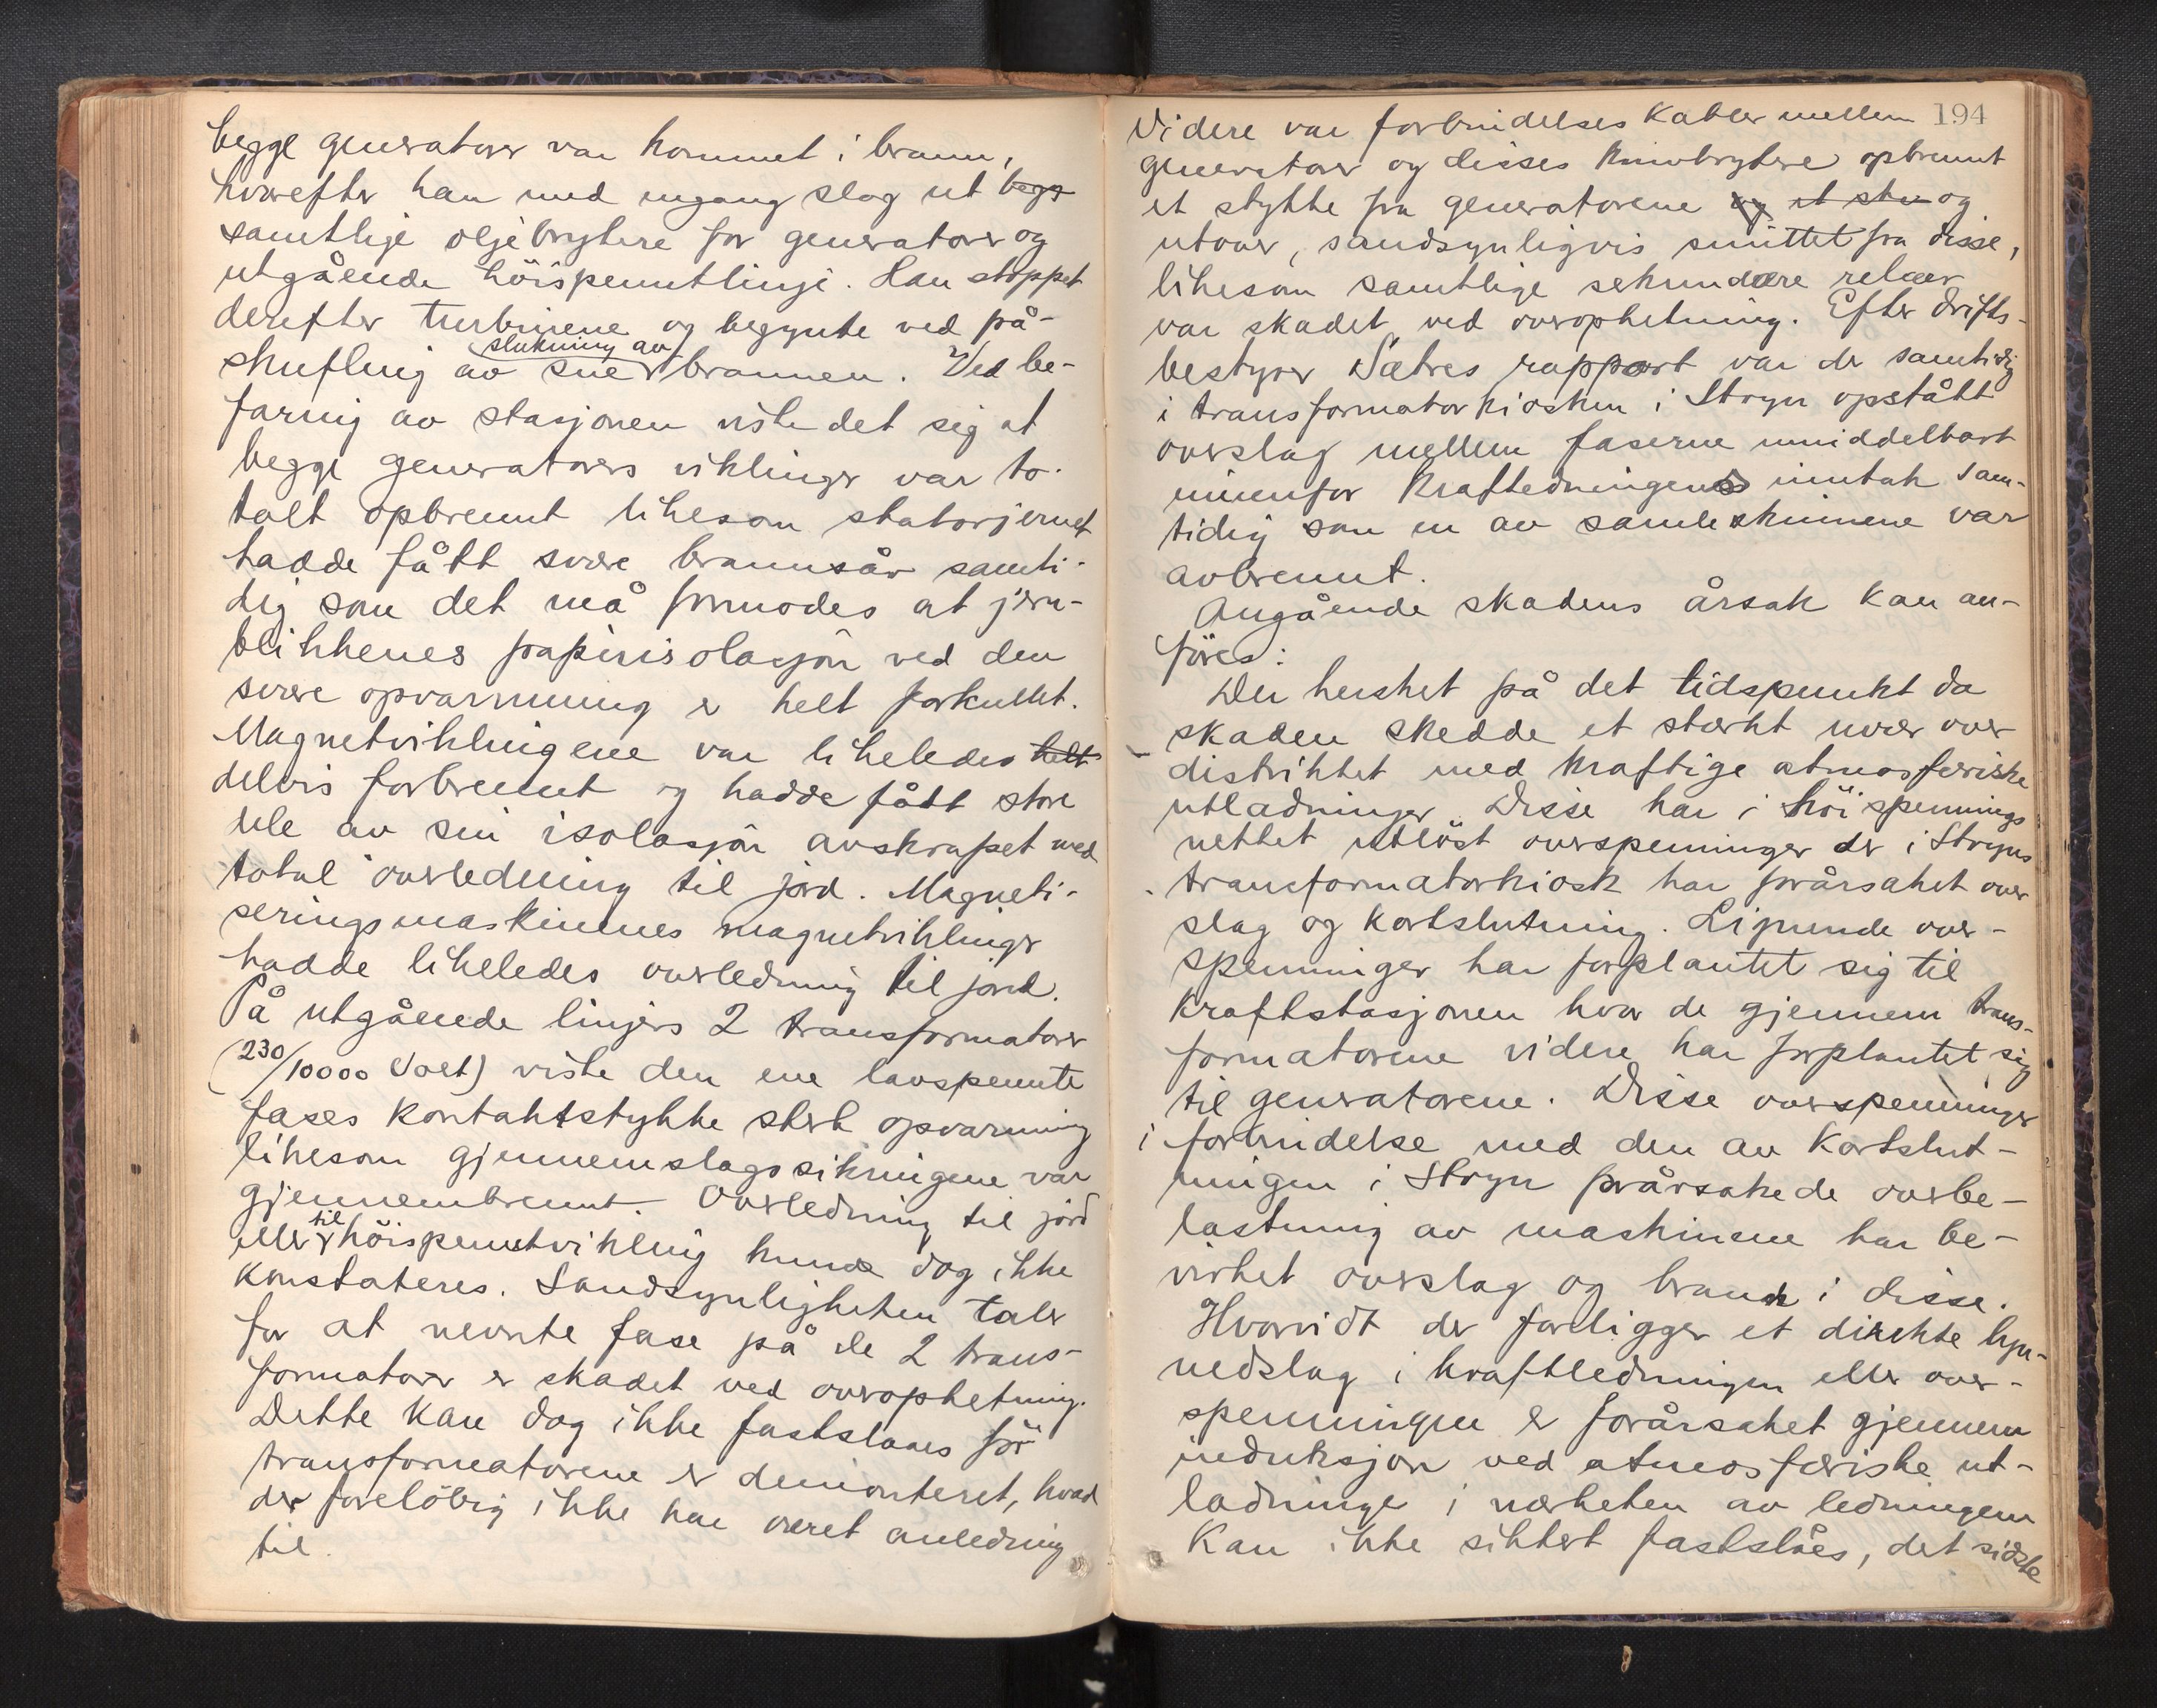 begge generatorer var kommet i brann,
hvorefter han med engang slog ut begg
samtlige oljebrytere for generatorer og
utgående höispenntlinje. Han stoppet
derefter turbinene og begynte ved på-
slukning av
skufling av sne brannen. Ved be-
faring av stasjonen viste det sig at
begge generatorers viklinger var to-
talt opbrennt likesom statorjernet
hadde fått svære brannsår samti-
dig som det må formodes at jern-
blikkenes papirisolasjon ved den
svære opvarmning er helt forkullet.
Magnetviklingene var likeledes helt
delvis forbrennt og hadde fått store
dele av sin isolasjon avskrapet med
total overledning til jord. Magneti-
seringsmaskinenes magnetviklinger
hadde likeledes overledning til jord.
På utgående linjers 2 transformatorer
(230/10000 Volt) viste den ene lavspennte
fases kontaktstykke sterk opvarming
likesom gjennemslagssikringene var
gjennembrennt. Overledning til jord
til
eller höispenntvikling kunde dog ikke
konstateres. Sandsynligheten taler
for at nevnte fase på de 2 trans-
formatorer er skadet ved overophetning.
Dette kan dog ikke fastslaaes för
transformatorene er demonteret, hvad
der foreløbig ikke har været anledning
til.
194
Videre var forbindelses kabler mellem
generatorer og disses knivbrytere opbrennt
et stykke fra generatorene og et sty og
utover, sandsynligvis smittet fra disse,
likesom samtlige sekundære relæer
var skadet ved overophetning. Efter drifts-
bestyrer Sætres rapport var der samtidig
i transformatorkiosken i Stryn opstått
overslag mellem faserne umiddelbart
innenfor kraftledningens inntak sam-
tidig som en av samleskinnene var
avbrennt.
Angående skadens årsak kan an-
föres:
Der hersket på det tidspunkt da
skaden skedde et sterkt uvær over
distriktet med kraftige atmosfæriske
utladninger. Disse har i höispennings
nettet utlöst overspenninger der i Stryns
transformatorkiosk har forårsaket over
slag og kortslutning. Lignende over-
spenninger har forplantet sig til
kraftstasjonen hvor de gjennem trans-
formatorene videre har forplantet sig
til generatorene. Disse overspenninger
i forbindelse med den av kortslut-
ningen i Stryn forårsakede overbe-
lastning av maskinene har be-
virket overslag og brand i disse.
Hvorvidt der foreligger et direkte lyn-
nedslag i kraftledningen eller over-
spenningen er forårsaket gjennem
induksjon ved atmosfæriske ut-
ladninger i nærheten av ledningen
kan ikke sikkert fastslåes, det sidste